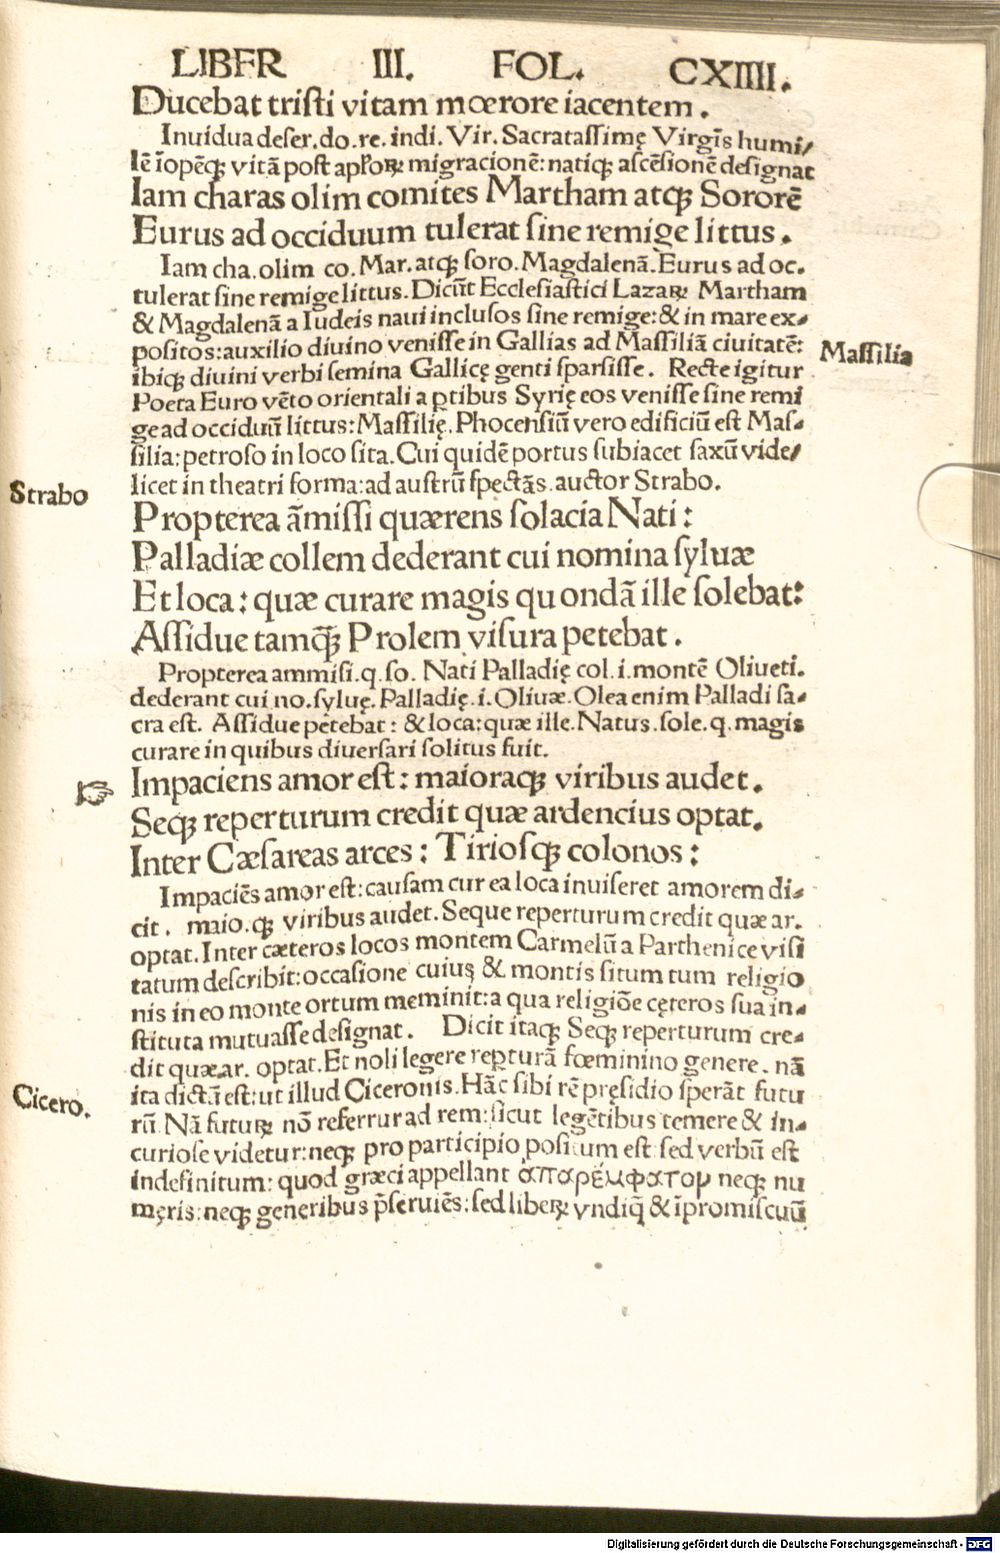 LIBER III. FOL. CXIIII.
Ducebat tristi vitam mœrore iacentem.
Inuidua deser. do. re. indi. Vir. Sacratassimę Virgīs humi/
lē īopēqꝫ vitā post apl'oꝝ migracionē: natiqꝫ ascēsionē designat
Iam charas olim comites Martham atqꝫ Sororē
Eurus ad occiduum tulerat sine remige littus.
Iam cha. olim co. Mar. atqꝫ soro. Magdalenā. Eurus ad oc.
tulerat sine remige littus. Dicūt Ecclesiastici Lazaꝝ Martham
& Magdalenā a Iudeis naui inclusos sine remige: & in mare ex-
positos: auxilio diuino venisse in Gallias ad Massiliā ciuitatē:
Massilia
ibiqꝫ diuini verbi semina Gallicę genti sparsisse. Recte igitur
Poeta Euro vēto orientali a ꝑtibus Syrię eos venisse sine remi
ge ad occiduū littus: Massilię. Phocensiū vero edificiū est Mas-
silia: petroso in loco sita. Cui quidē portus subiacet saxū vide/
Strabo
licet in theatri forma: ad austrū spectās auctor Strabo.
Propterea āmissi quærens solacia Nati:
Palladiæ collem dederant cui nomina syluæ
Et loca: quæ curare magis quondā ille solebat:
Assidue tamqꝫ̄ Prolem visura petebat.
Propterea ammisi. q. so. Nati Palladię col. i. montē Oliueti.
dederant cui no. syluę. Palladię. i. Oliuæ. Olea enim Palladi sa-
cra est. Assidue petebat: & loca: quæ ille. Natus. sole. q. magis
curare in quibus diuersari solitus fuit.
☞ Impaciens amor est: maioraqꝫ viribus audet.
Seqꝫ reperturum credit quæ ardencius optat.
Inter Cæsareas arces: Tiriosqꝫ colonos:
Impaciēs amor est: causam cur ea loca inuiseret amorem di-
cit. maio. qꝫ viribus audet. Seque reperturum credit quæ ar.
optat. Inter cæteros locos montem Carmelū a Parthenice visi
tatum describit: occasione cuiuꝰ & montis situm tum religio
nis in eo monte ortum meminit: a qua religiōe cęteros sua in-
stituta mutuasse designat. Dicit itaqꝫ Seqꝫ reperturum cre-
dit quæ ar. optat. Et noli legere repturā fœminino genere. nā
ita dictā est: ut illud Ciceronis. Hāc sibi rē pręsidio sperāt futu
Cicero.
rū. Nā futuꝝ nō referrur ad rem: sicut legētibus temere & in-
curiose videtur: neqꝫ pro participio positum est sed verbū est
indefinitum: quod græci appellant απαρέμφατον neqꝫ nu
męris: neqꝫ generibus p̄seruiēs: sed libeꝝ vndiq̄ & īpromiscuū
Digitalisierung gefördert durch die Deutsche Forschungsgemeinschaft - DFG